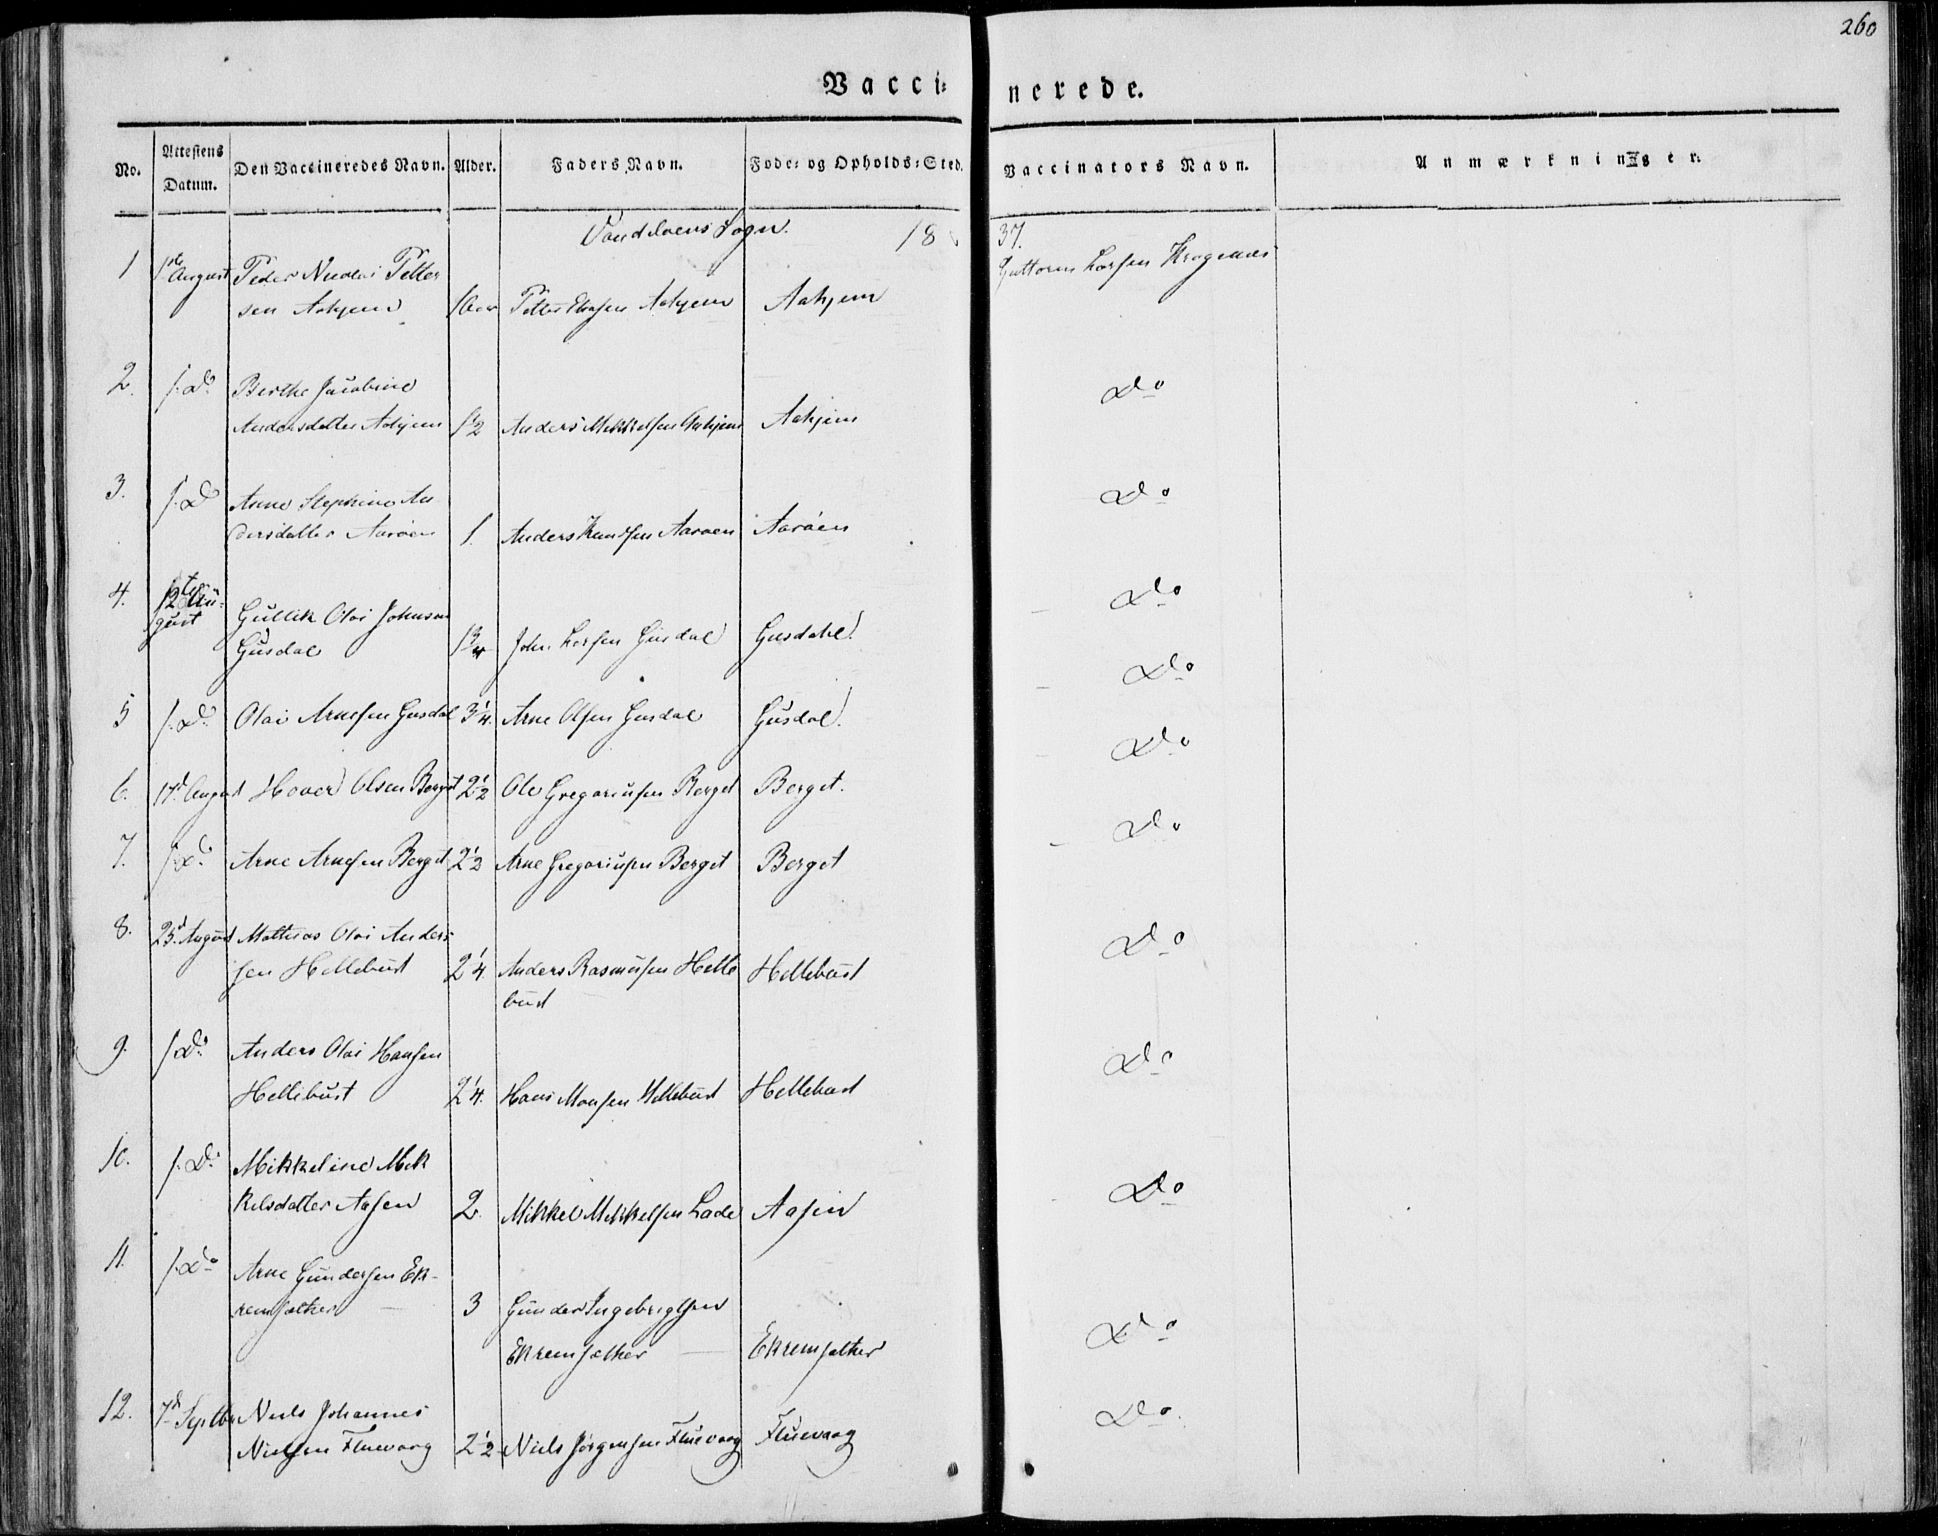 260
Vacci- nerede.
No. Attestens Datum. Den Vaccineredes Navn. Alder. Faders Navn. Føde- og Opholds-Sted. Vaccinators Navn. Anmærkninger.
Sogn. 18 37.
1 1ste August Peder Nicolai Petter Guttorm Larsen Krogenæs
sen Aahjem Petter Aahjem Aahjem
2. f. Do Berthe Jacobine Do
Andersdatter Aahjem 1½ Anders Mikkelsen Aahjem Aahjem
3. f. Do Anne Stephine An Do
dersdatter Aarøen 1. Anders Knudsen Aarøen Aarøen
4. 12te Au- Do
gust Gullik Olai Johnsen
Gusdal 1¾ John Larsen Gusdal Gusdahl.
Do
5 f. Do Olai Arnesen Gusdal 3¼. Arne Olsen Gusdal Gusdal.
Do
6. 17d August Hover Olsen Berget 2½ Ole Gregoriusen Berget Berget.
Do
7. f. Do Arne Arnesen Berget 2½ Arne Gregoriusen Berget Berget
8. 25d August Mathias Olai Anders- Do
sen Hellebust 2¼. Anders Rasmusen Helle Hellebust
bust
9. f. Do Anders Olai Hansen Do
Hellebust 2¼. Hans Monsen Hellebust Hellebust
10. f. Do Mikkeline Mik Do
kelsdatter Aasen 2. Mikkel Mikkelsen Lade Aasen
11. f. Do Arne Gundersen Ek-
remsæther 3 Gunder Ingebrigtsen Do
Ekremsæther Ekremsæther
12. 7d Septbr Niels Johannes Do.
Nielsen Fluevaag 2½ Niels Jørgensen Fluevaag Fluevaag